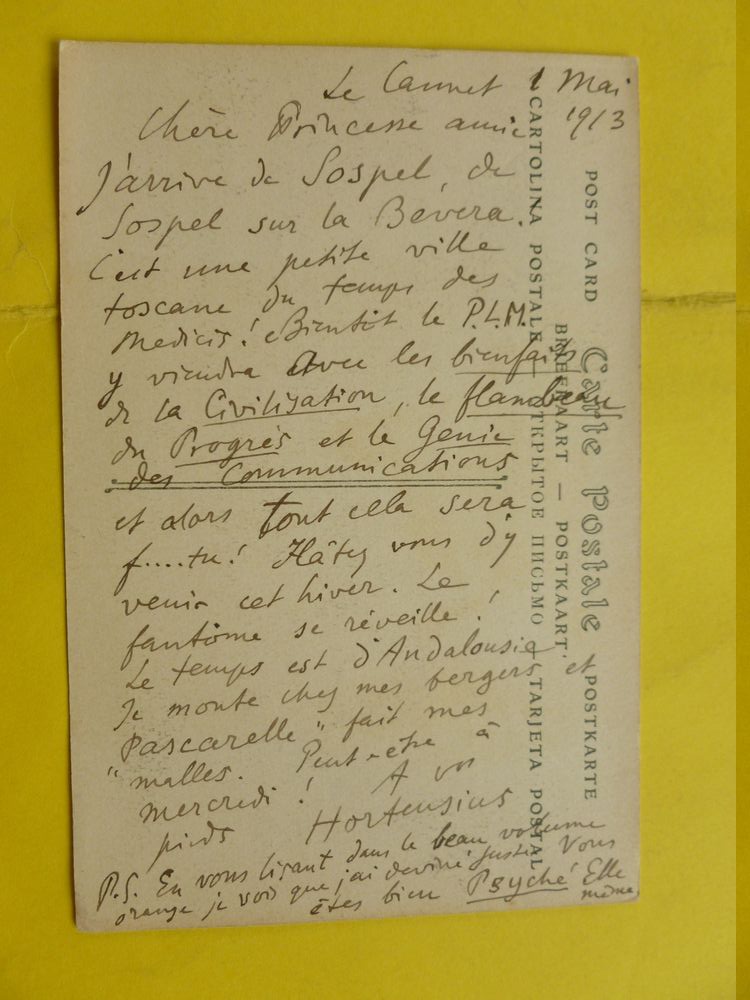 Le Cannet 1 Mai
1913
Chère Princesse amie
J'arrive de Sospel, de
Sospel sur la Bevera.
C'est une petite ville
toscane du temps des
Medicis! Bientôt le P.L.M.
y viendra avec les bienfaits
de la Civilization, le flambeau
du Progrès et le Genie
des Communications
et alors tout cela sera
f....tu! Hâtez vous d'y
venir cet hiver. Le
fantôme se réveille!
Le temps est d'Andalousie
Je monte chez mes bergers et
"Pascarelle" fait mes
malles. Peut-être à
mercredi! A vos
pieds Hortensius
P.S. En vous lisant dans le beau volume
orange je vois que j'ai deviné juste Vous
êtes bien Psyché Elle
même
Carte Postale
POST CARD
POSTKARTE
BRIEFKAART — POSTKAART
CARTOLINA POSTALE
ОТКРЫТОЕ ПИСЬМО
TARJETA POSTAL